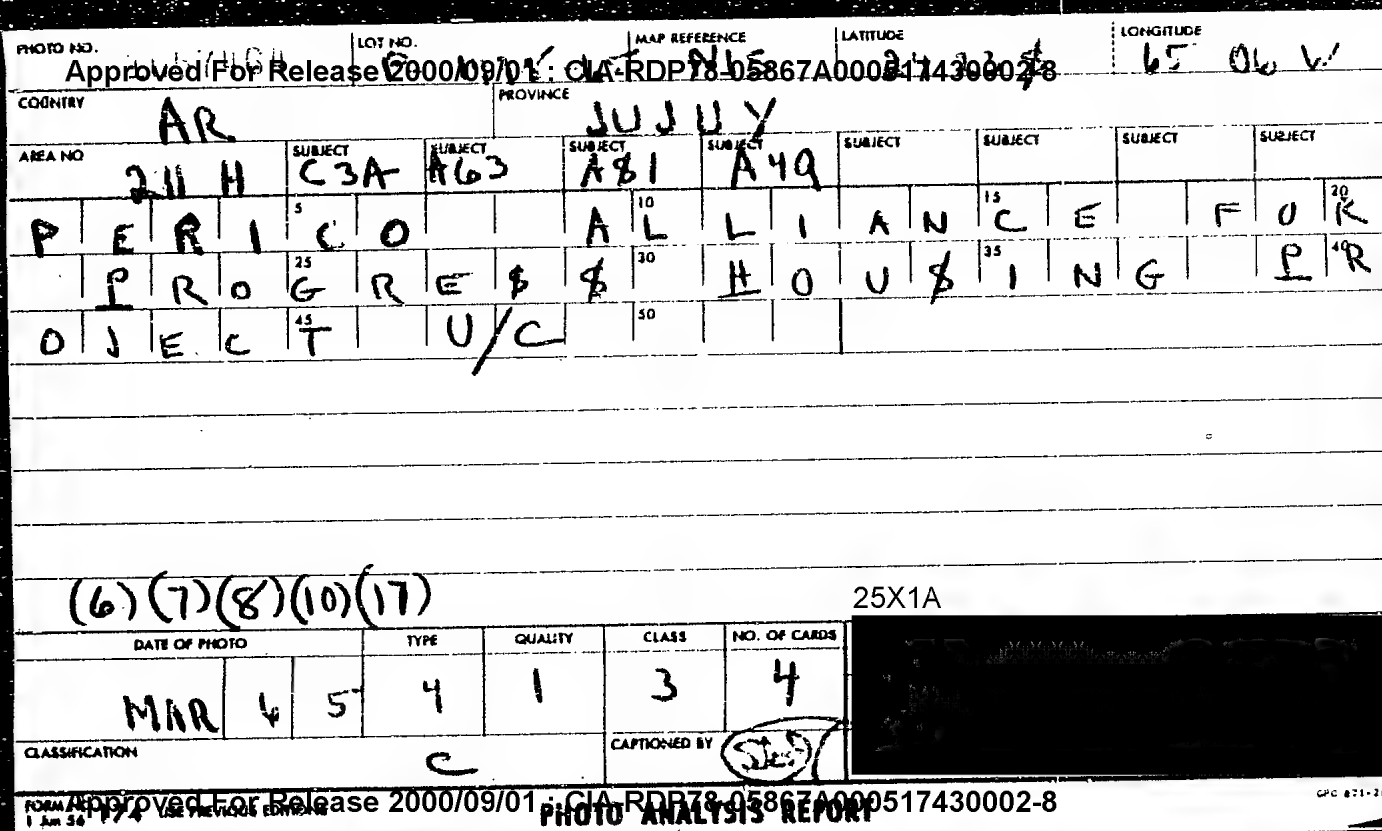 PHOTO NO. LOT NO. MAP REFERENCE LATITUDE LONGITUDE
Approved For Release 2000/09/01 : CIA-RDP78-05867A000517430002-8
65 06 W
COUNTRY AR PROVINCE JUJUY
AREA NO 211 H SUBJECT C3A SUBJECT A63 SUBJECT A81 SUBJECT A49 SUBJECT SUBJECT SUBJECT SUBJECT
PERICO 5 ALLIANCE 10 15 FOR 20
PROGRESS 25 30 HOUSING 35 PR 40
OJECT 45 U/C 50
(6)(7)(8)(10)(17)
25X1A
DATE OF PHOTO TYPE QUALITY CLASS NO. OF CARDS
MAR 65 4 1 3 4
CLASSIFICATION C CAPTIONED BY
FORM 1 Jun 56 174 USE PREVIOUS EDITIONS PHOTO ANALYSIS REPORT
Approved For Release 2000/09/01 : CIA-RDP78-05867A000517430002-8